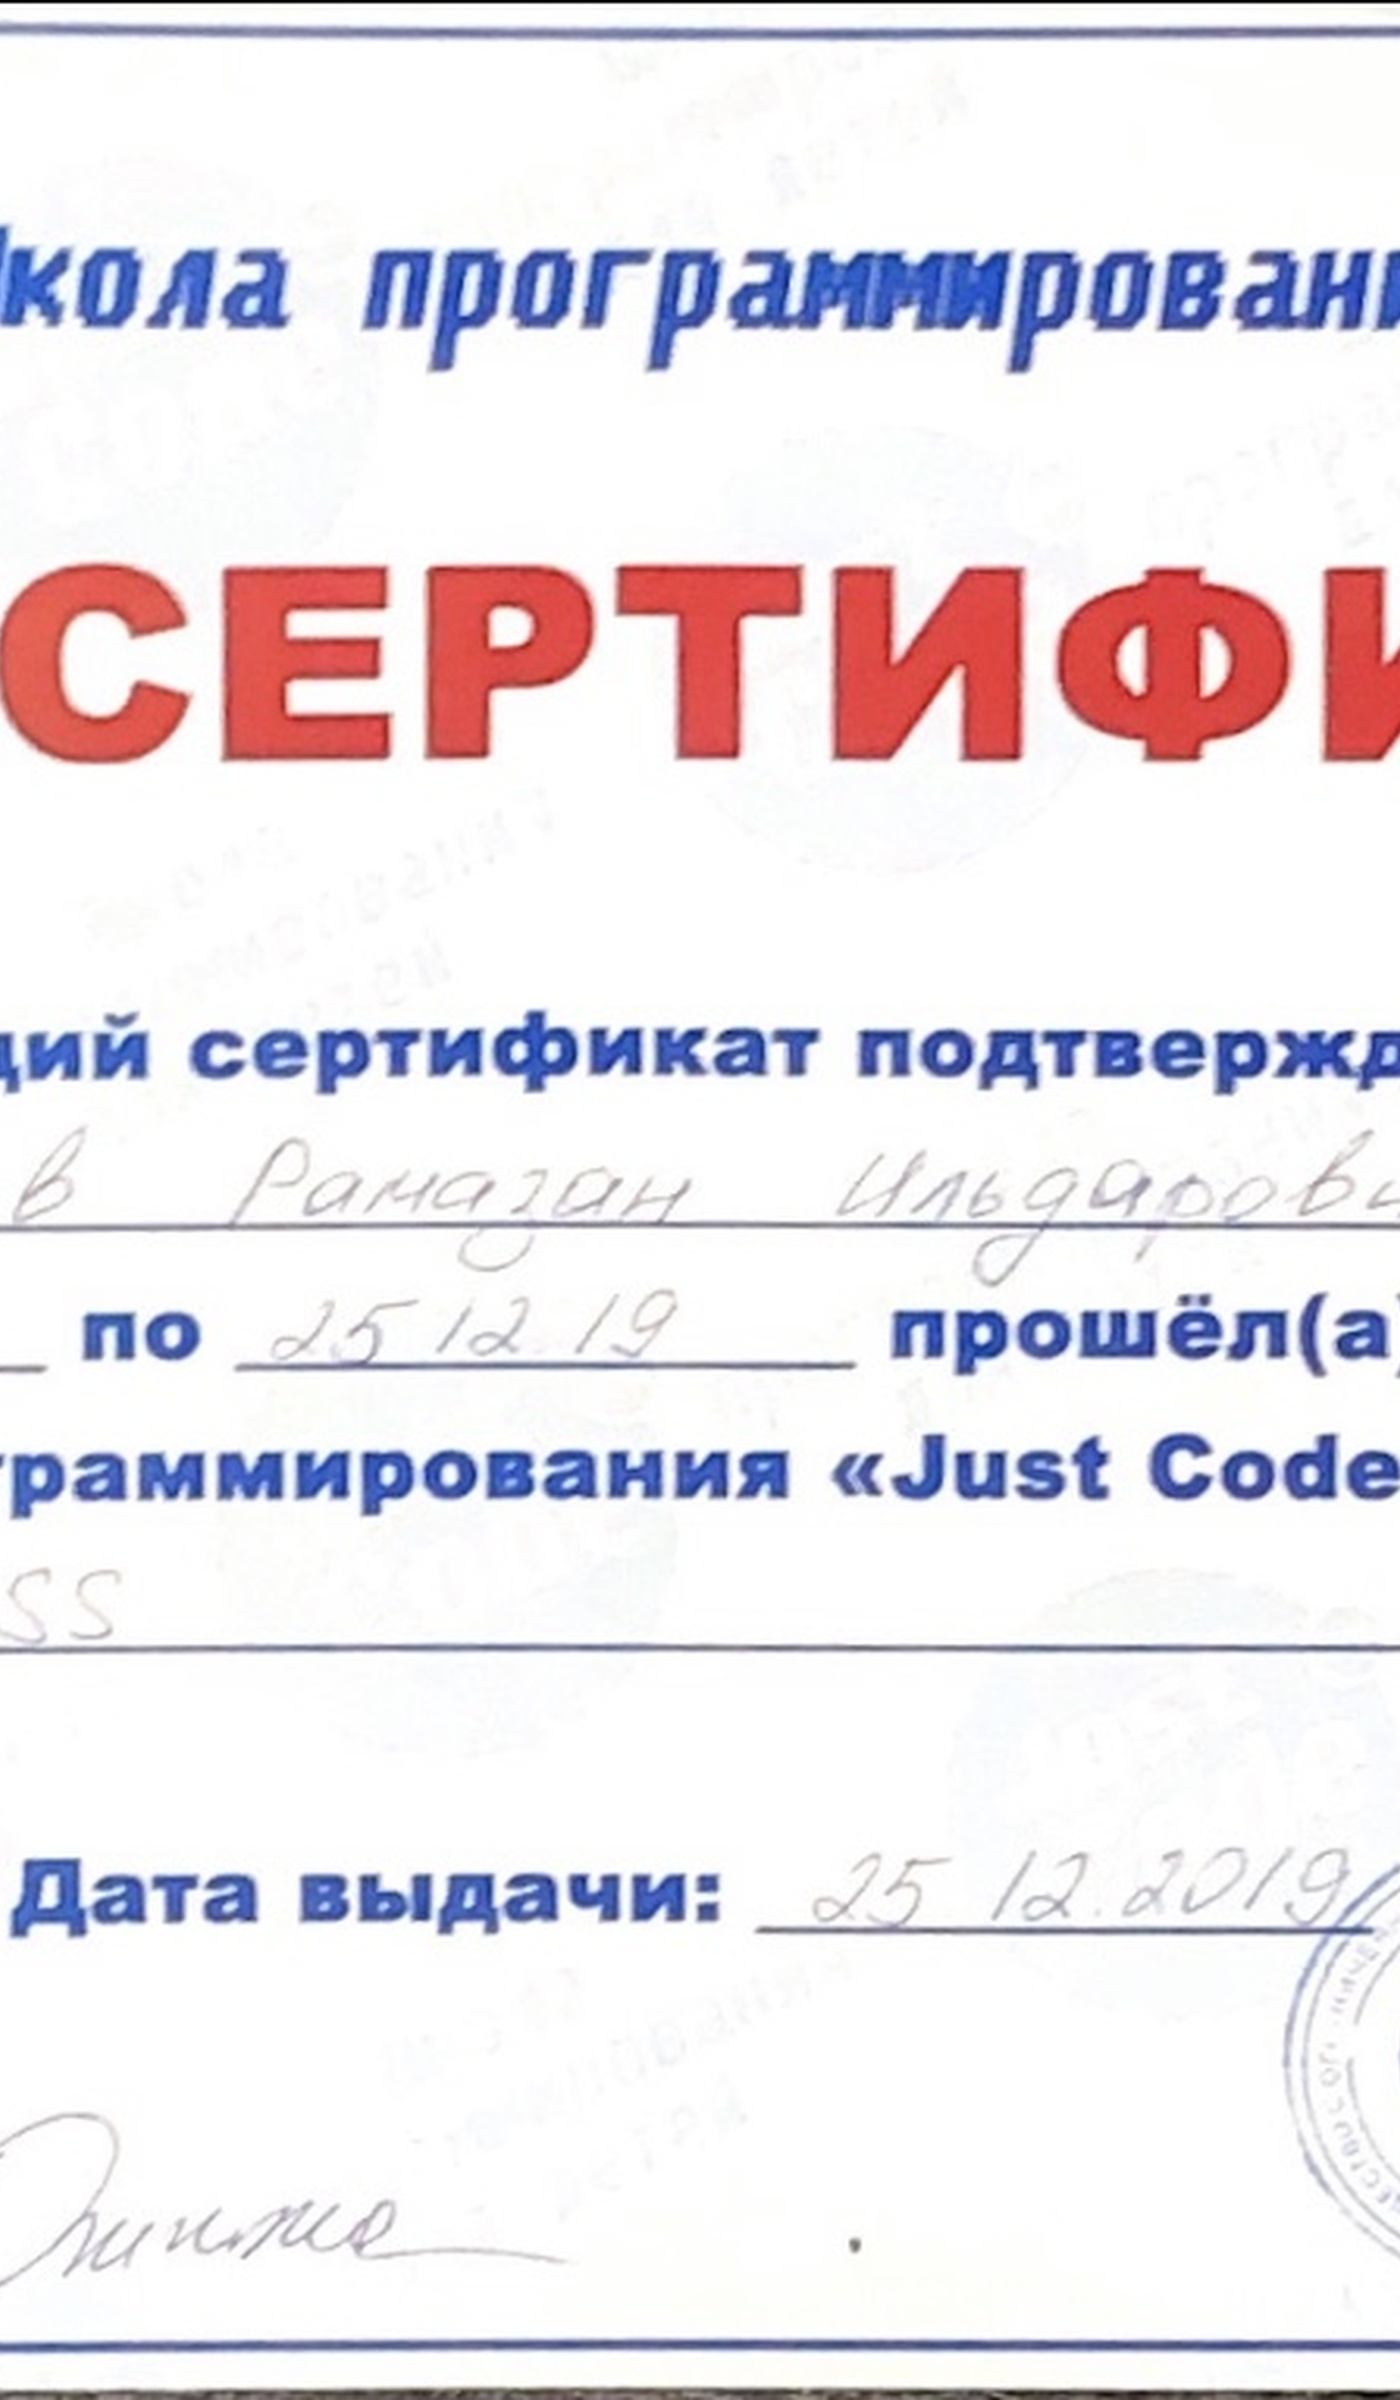 кола программирован
СЕРТИФИ
щий сертификат подтвержд
в Рамазан Ильдарови
по 25 12 19 прошёл(а)
граммирования «Just Code
SS
Дата выдачи: 25.12.2019